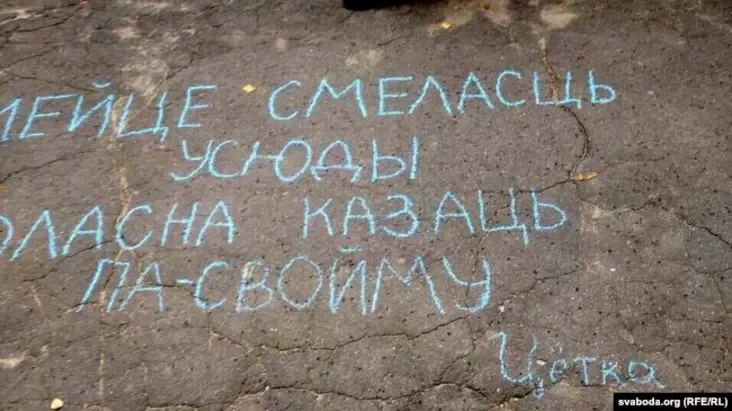 МЕЙЦЕ СМЕЛАСЦЬ
УСЮДЫ
ОЛАСНА КАЗАЦЬ
ПА-СВОЙМУ
Цётка
svaboda.org (RFE/RL)